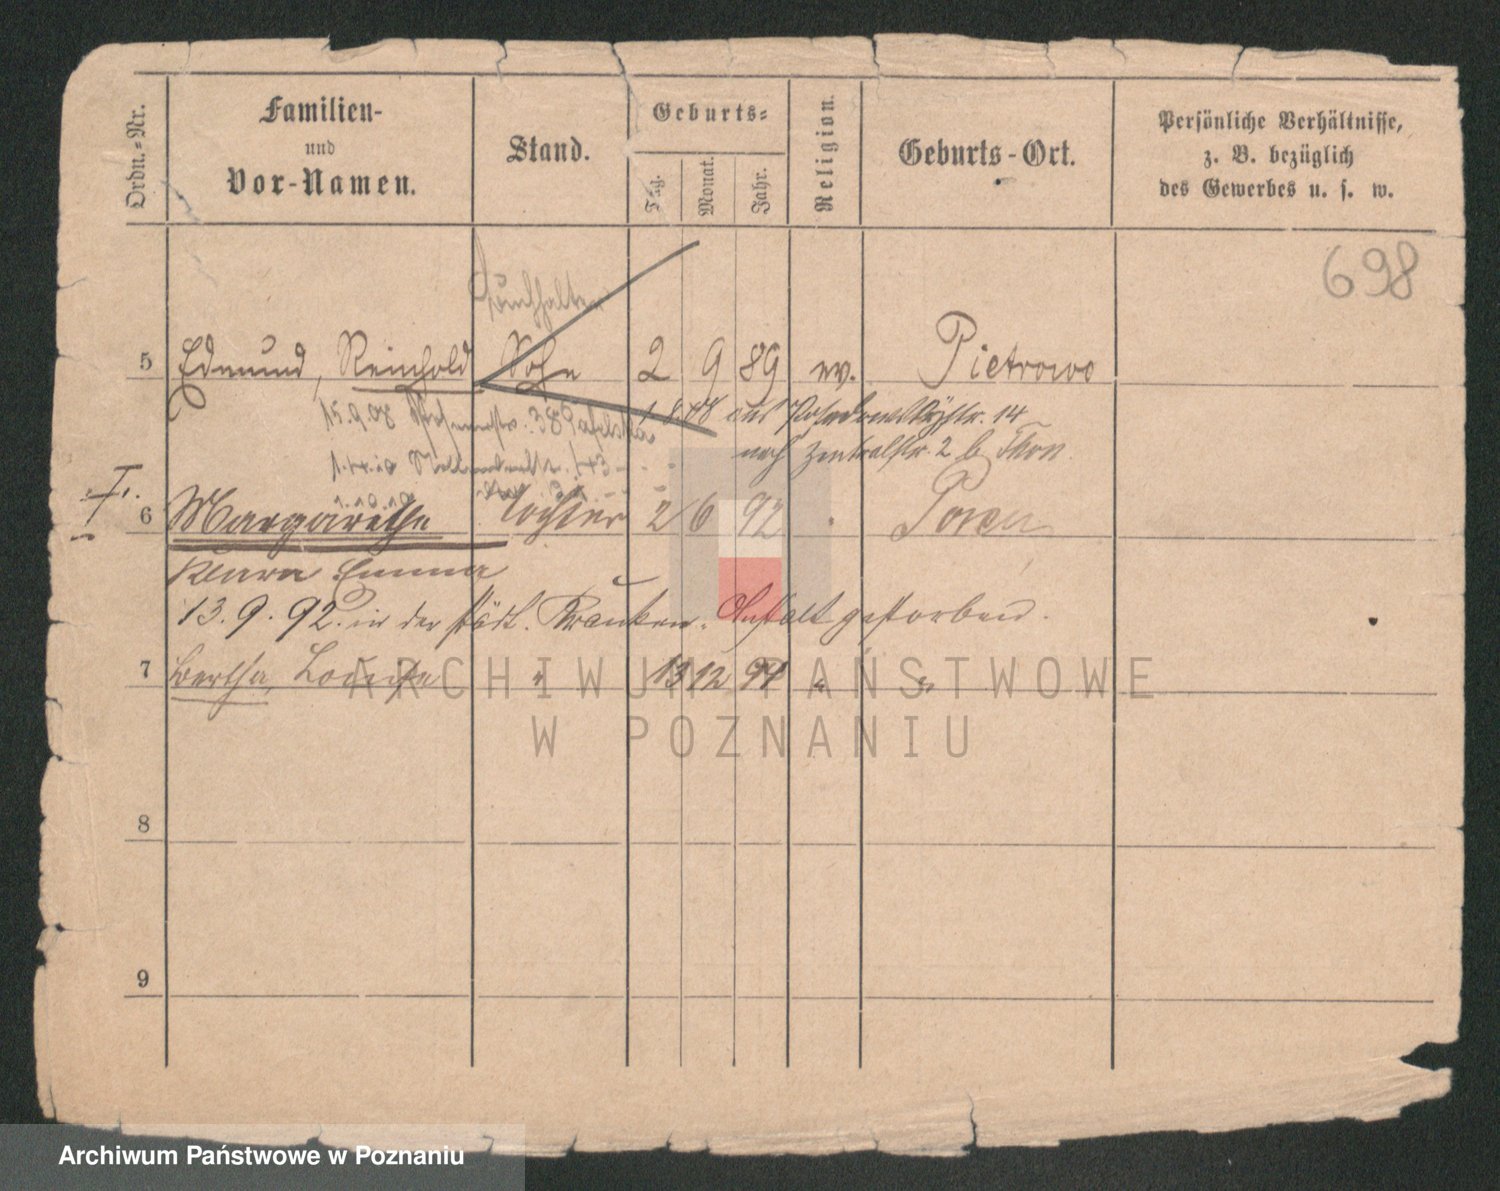 Ordn.-Nr.
Familien-
und
Vor-Namen.
Stand.
Geburts-
Tag.
Monat.
Jahr.
Religion.
Geburts-Ort.
Persönliche Verhältnisse,
z. B. bezüglich
des Gewerbes u. s. w.
698
Buchhalter
5 Edmund, Reinhold Sohn 2 9 89 ev. Pietrowo
15.9.08
1.4.10
1.10.10
1 8.08 aus 14
nach Zentralstr. 2 b.
I.
6 Margarethe Tochter 2 6 92 " Posen
Klara Emma
13.9.92. in der städt. Kranken-Anstalt gestorben.
7 Bertha, Louise " 13 12 94 " "
8
9
ARCHIWUM PAŃSTWOWE
W POZNANIU
Archiwum Państwowe w Poznaniu